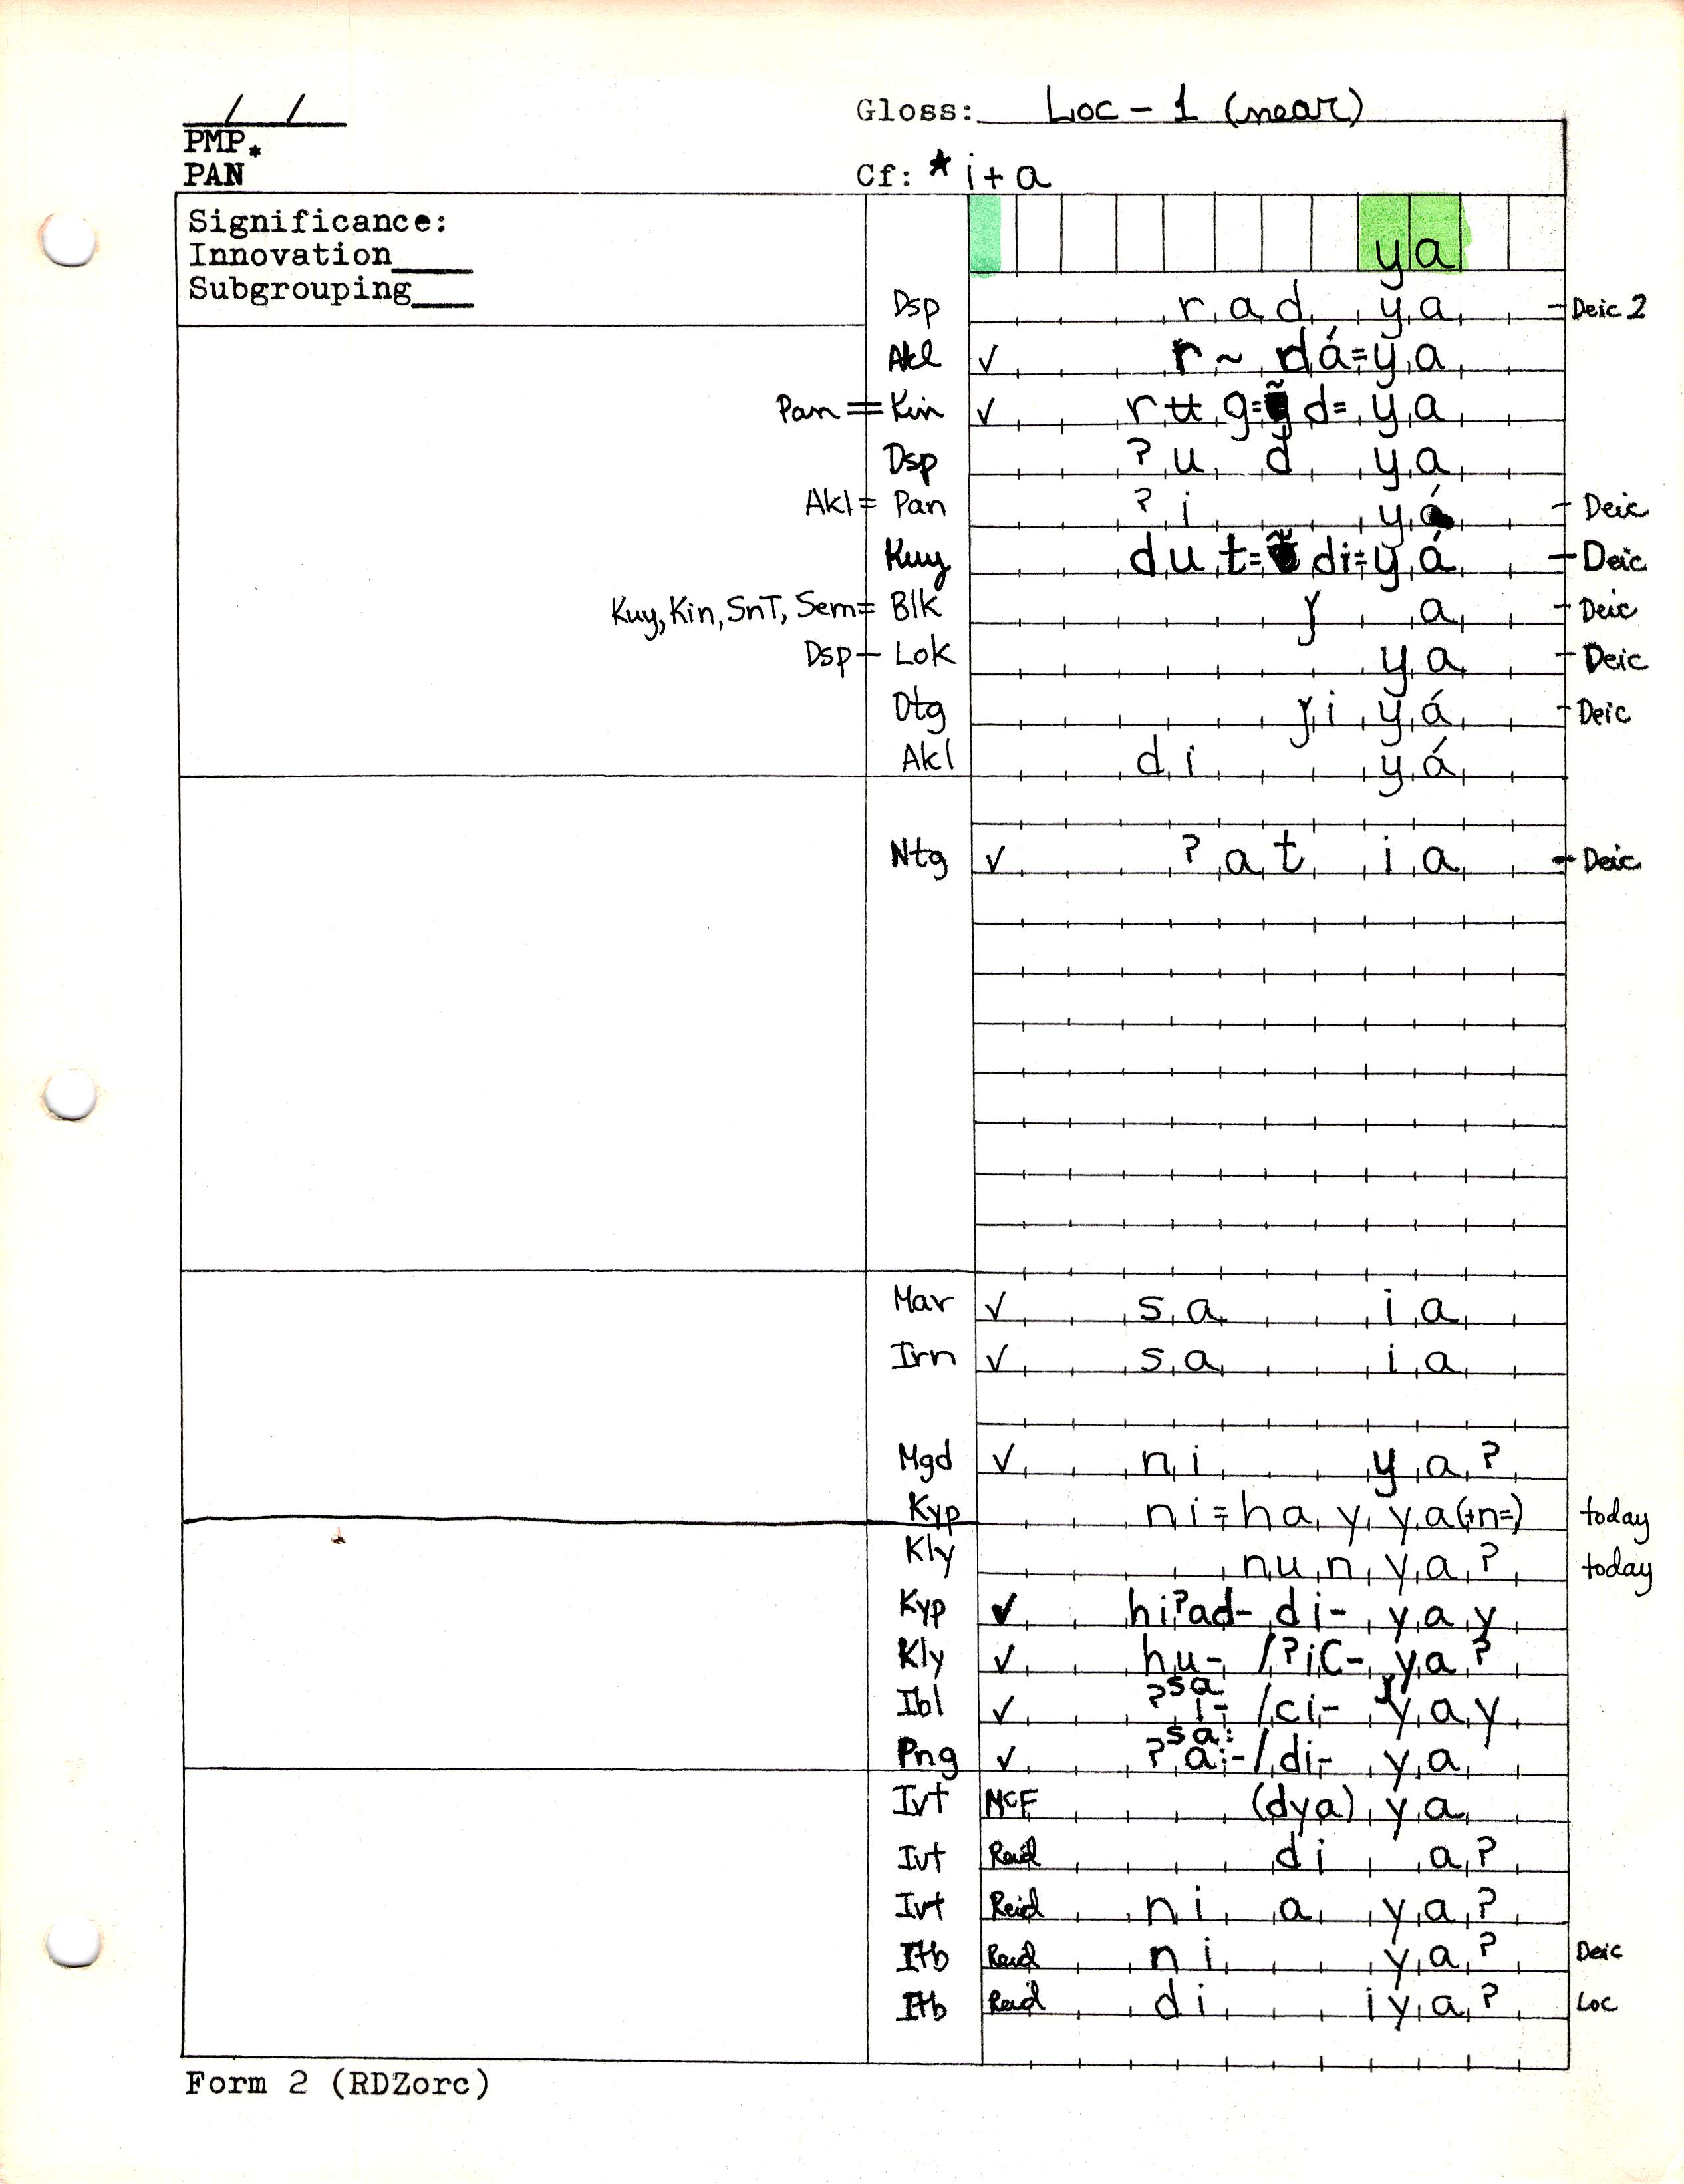 / /
Gloss: Loc - 1 (near)
PMP*
PAN
Cf: * i + a
Significance:
Innovation____
Subgrouping___
y a
Dsp r a d y a - Deic 2
Akl ✓ r ~ d á = y a
Pan = Kin ✓ r u g = ~ d = y a
Dsp ? u d y a
Akl = Pan ? i y á - Deic
Kuy d u t = ~ di = y á - Deic
Kuy, Kin, SnT, Sem = Blk ɟ a - Deic
Dsp - Lok y a - Deic
Otg ɟ i y á - Deic
Akl d i y á
Ntg ✓ ? a t i a - Deic
Mar ✓ s a i a
Irn ✓ s a i a
Mgd ✓ n i y a ?
Kyp n i = h a y y a (+n=) today
Kly n u n y a ? today
Kyp ✓ hi?ad- di- y a y
Kly ✓ hu- / ?iC- y a ?
Ibl ✓ ? sa i- / ci- y a y
Png ✓ ? sa: a:- / di- y a
Ivt MCF (dya) y a
Ivt Reid d i a ?
Ivt Reid n i a y a ?
Itb Reid n i y a ? Deic
Itb Reid d i i y a ? Loc
Form 2 (RDZorc)